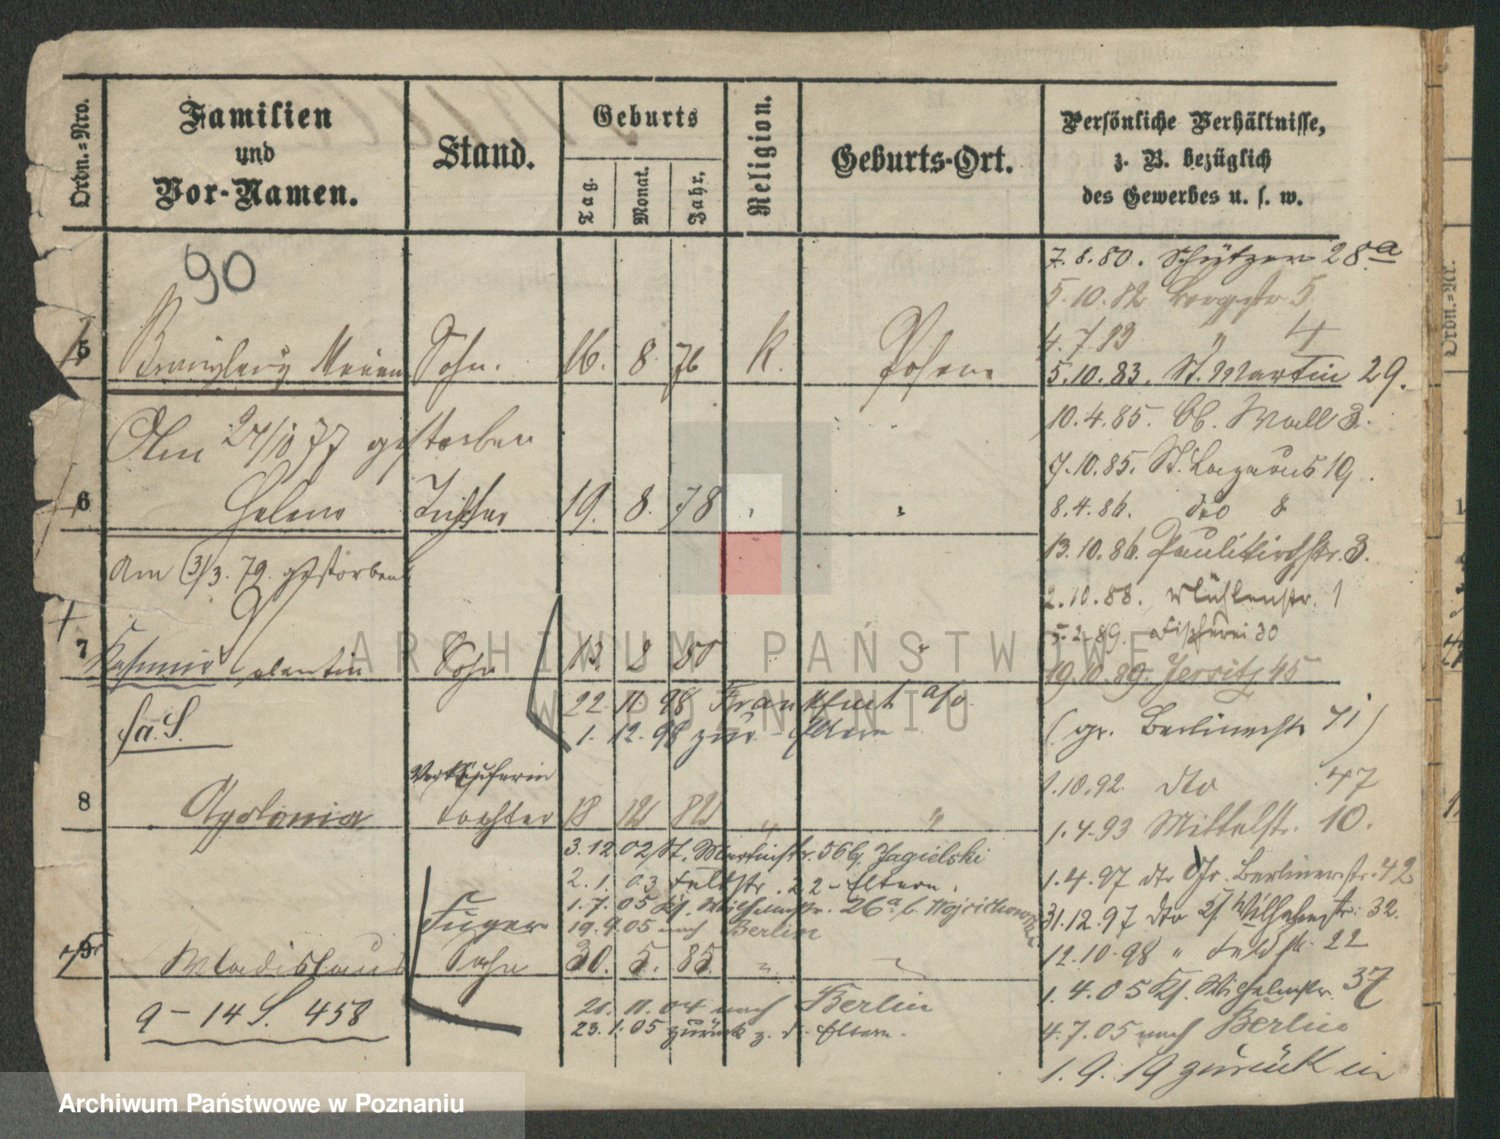 Ordn.=Nro.
Familien
und
Vor-Namen.
Stand.
Geburts
Tag.
Monat.
Jahr.
Religion.
Geburts-Ort.
Persönliche Verhältnisse,
z. B. bezüglich
des Gewerbes u. s. w.
Ordn.=Nr.
90
7. 8. 80. Schützen 28a
5.10.82 5
4.7.83 " 4
5 Sohn. 16. 8 76 k. Posen
5.10.83. St. Martin 29.
Am 27/10 77 gestorben
10.4.85. Wall 3.
7.10.85. St. Lazarus 19.
6 Helene Tochter 19. 8. 78 " "
8.4.86. dto 8
13.10.86. Paulikirchstr. 3.
Am 31/3. 79. gestorben
2.10.88. Mühlenstr. 1
5.2.89. Fischerei 30
7 Kasimir Valentin Sohn 13 2 80 "
19.10.89. Jersitz 45
22. 11. 98 Frankfurt a/o
1. 12. 98 zur. Eltern
fa. S.
(gr. Berlinerstr 71)
1.10.92. dto 47
Verkäuferin
8 Apolonia Tochter 18 12 82 " "
1.4.93 Mittelstr. 10.
3.12.02 St. Martinstr. 56 b. Jagielski
2. 1. 03 Feldstr. 22 - Eltern.
1.4.97 dto Gr. Berlinerstr. 42
1.7.05 Kl. Wilhelmstr. 26a b. Wojciechowska
19.9.05 nach Berlin
31.12.97 dto Wilhelmstr. 32.
12.10.98 " Feldstr. 22
9 Wladislaus Sohn 30. 5. 85. " "
1. 4. 05 Kl. Wilhelmstr. 37
21. 11. 04 nach Berlin
23. 1. 05 zurück z. d. Eltern.
9 – 14 S. 458
4.7.05 nach Berlin
1. 9. 19 zurück in
ARCHIWUM PAŃSTWOWE
W POZNANIU
Archiwum Państwowe w Poznaniu